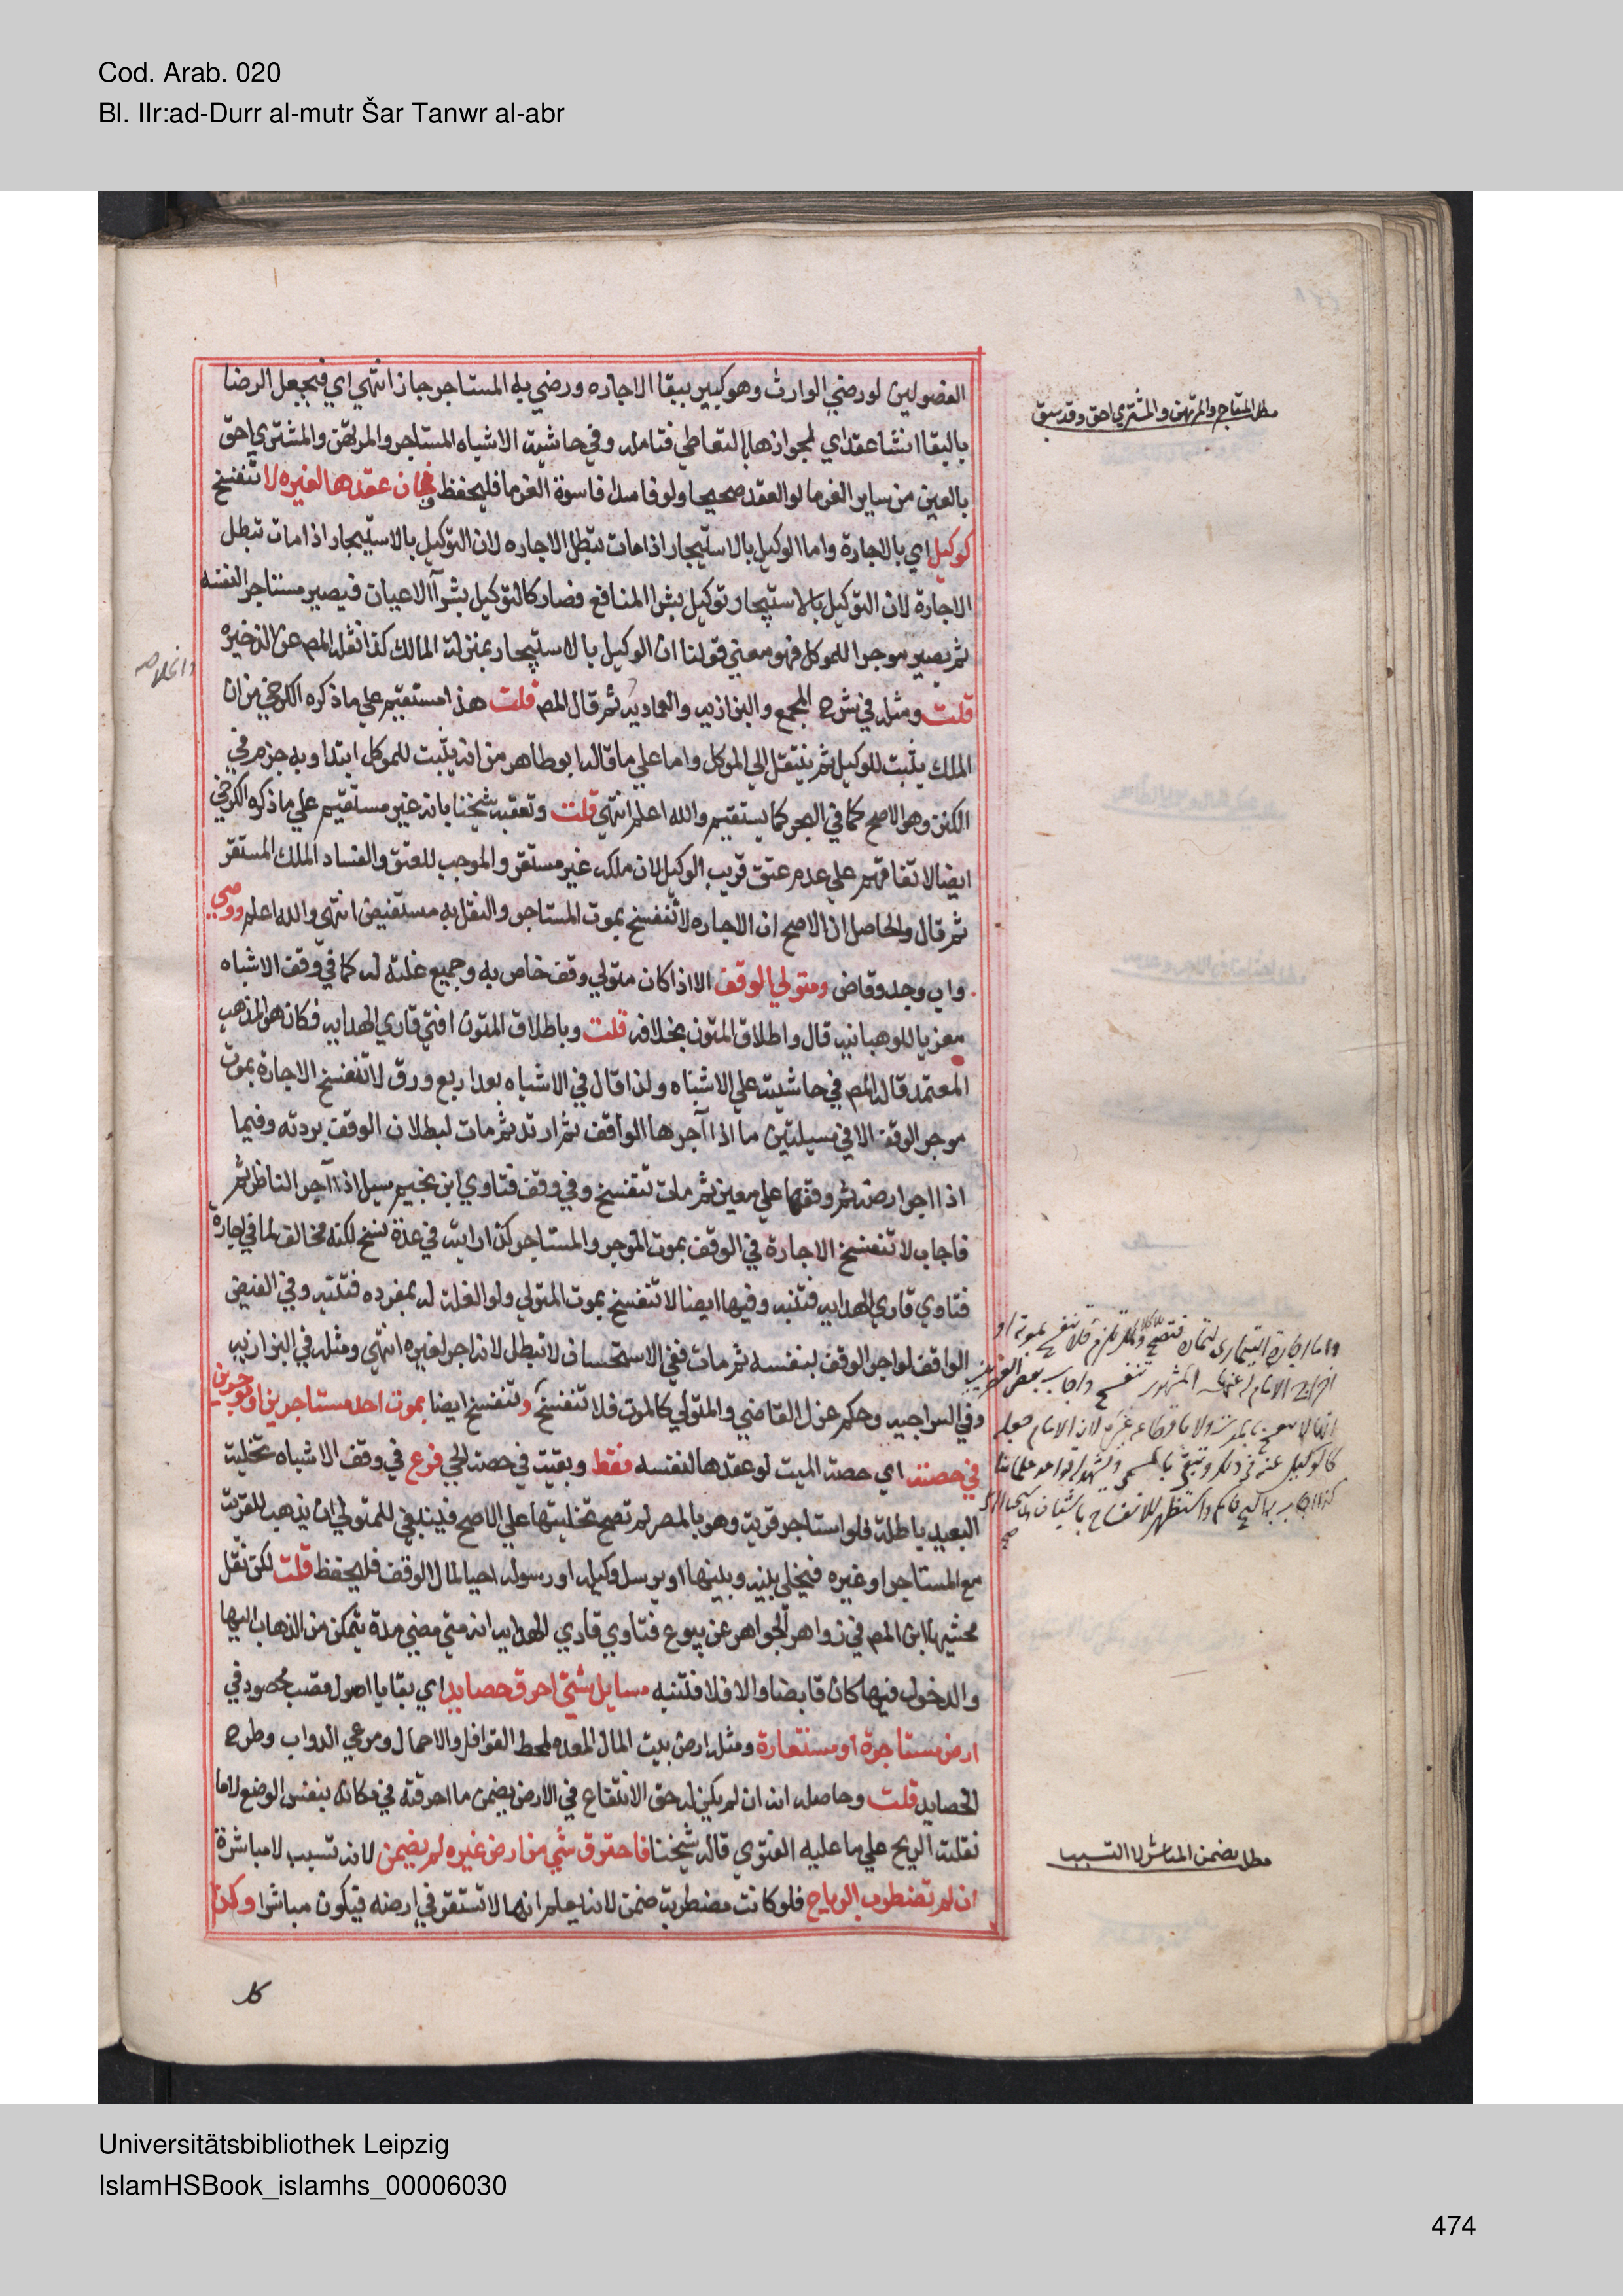 Cod. Arab. 020
Bl. IIr:ad-Durr al-mutr Šar Tanwr al-abr
الفصولين لو رضي الوارث وهو كبير ببقا الاجاره ورضي به المستاجر جاز انتهى اي فيجعل الرضا
بالبقا انشا عقد اي لجوازها بالتعاطي فتامله وفي حاشية الاشباه المستاجر والمرتهن والمشتري احق
مطلب المستاجر والمرتهن والمشتري احق وقد سبق
بالعين من ساير الغرما لو العقد صحيحا ولو فاسدا فاسوة الغرما فليحفظ فان عقدها لغيره لا تنفسخ
كوكيل اي بالاجارة واما الوكيل بالاستيجار اذا مات تبطل الاجاره لان التوكيل بالاستيجار اذا مات تبطل
الاجارة لان التوكيل بالاستيجار توكيل بشرا المنافع فصار كالتوكيل بشرآ الاعيان فيصير مستاجرا لنفسه
ثم يصير موجرا للموكل فهو معني قولنا ان الوكيل بالاستيجار بمنزلة المالك كذا نقله المص عن الذخيره
والخلاصه
قلت ومثله في شرح المجمع والبزازيه والعماديه ثم قال المص قلت هذا مستقيم علي ما ذكره الكرخي من ان
الملك يثبت للوكيل ثم ينتقل الي الموكل واما علي ما قاله ابو طاهر من انه يثبت للموكل ابتدا وبه جزم في
الكنز وهو الاصح كما في البحر كما يستقيم والله اعلم انتهي قلت وتعقبه شيخنا بانه غير مستقيم علي ما ذكره الكرخي
ايضا لاتفاقهم علي عدم عتق قريب الوكيل لان ملكه غير مستقر والموجب للعتق والفساد الملك المستقر
ثم قال والحاصل ان الاصح ان الاجاره لا تنفسخ بموت المستاجر والنقل به مستفيض انتهي والله اعلم ووصي
واب وجد وقاض ومتولي الوقف الا اذا كان متولي وقف خاص به وجميع غلته له كما في وقف الاشباه
معزيا للوهبانيه قال واطلاق المتون بخلافه قلت وباطلاق المتون افتي قاري الهدايه فكان هو المذهب
المعتمد قاله المص في حاشيته علي الاشباه ولذا قال في الاشباه بعد اربع ورق لا تنفسخ الاجارة بموت
موجر الوقف الا في مسيلتين ما اذا آجرها الواقف ثم ارتد ثم مات لبطلان الوقف بردته وفيما
اذا اجر ارضه ثم وقفها علي معين ثم مات تنفسخ وفي وقف فتاوي ابن نجيم سيل اذا آجر الناظر ثم
فاجاب لا تنفسخ الاجارة في الوقف بموت الموجر والمستاجر كذا رايته في عدة نسخ لكنه مخالف لما في اجارة
فتاوي قاري الهدايه فتنبه وفيها ايضا لا تنفسخ بموت المتولي ولو الغلة له بمفرده فتنبه وفي الفيض
الواقف لو اجر الوقف بنفسه ثم مات ففي الاستحسان لا تبطل لانه اجر لغيره انتهي ومثله في البزازيه
وفي السراجيه وحكم عزل القاضي والمتولي كالموت فلا تنفسخ وتنفسخ ايضا بموت احد مستاجرين او موجرين
في حصته اي حصة الميت لو عقدها لنفسه فقط وبقيت في حصة الحي فرع في وقف الاشباه تخلية
البعيد باطلة فلو استاجر قرية وهو بالمصر لم تصح تخليتها علي الاصح فينبغي للمتولي ان يذهب للقرية
مع المستاجر او غيره فيخلي بينه وبينها او يرسل وكيله او رسوله احيا لمال الوقف فليحفظ قلت لكن نقل
محشيها ابن المص في زواهر الجواهر عن بيوع فتاوي قاري الهدايه انه متي مضي مدة يتمكن من الذهاب اليها
والدخول فيها كان قابضا والا فلا فتنبه مسايل شتي احرق حصايد اي بقايا اصول قصب محصود في
ارض مستاجرة او مستعارة ومثله ارض بيت المال المعده لحط القوافل والاحمال ومرعي الدواب وطرح
الحصايد قلت وحاصله انه ان لم يكن له حق الانتفاع في الارض يضمن ما احرقته في مكانه بنفس الوضع لا ما
نقلته الريح علي ما عليه الفتوي قاله شيخنا فاحترق شي من ارض غيره لم يضمن لانه تسبب لا مباشرة
مطلب يضمن المباشر لا المتسبب
ان لم تضطرب الرياح فلو كانت مضطربة ضمن لانه يعلم انها لا تستقر في ارضه فيكون مباشرا وكذا
كل
Universitätsbibliothek Leipzig
IslamHSBook_islamhs_00006030
474